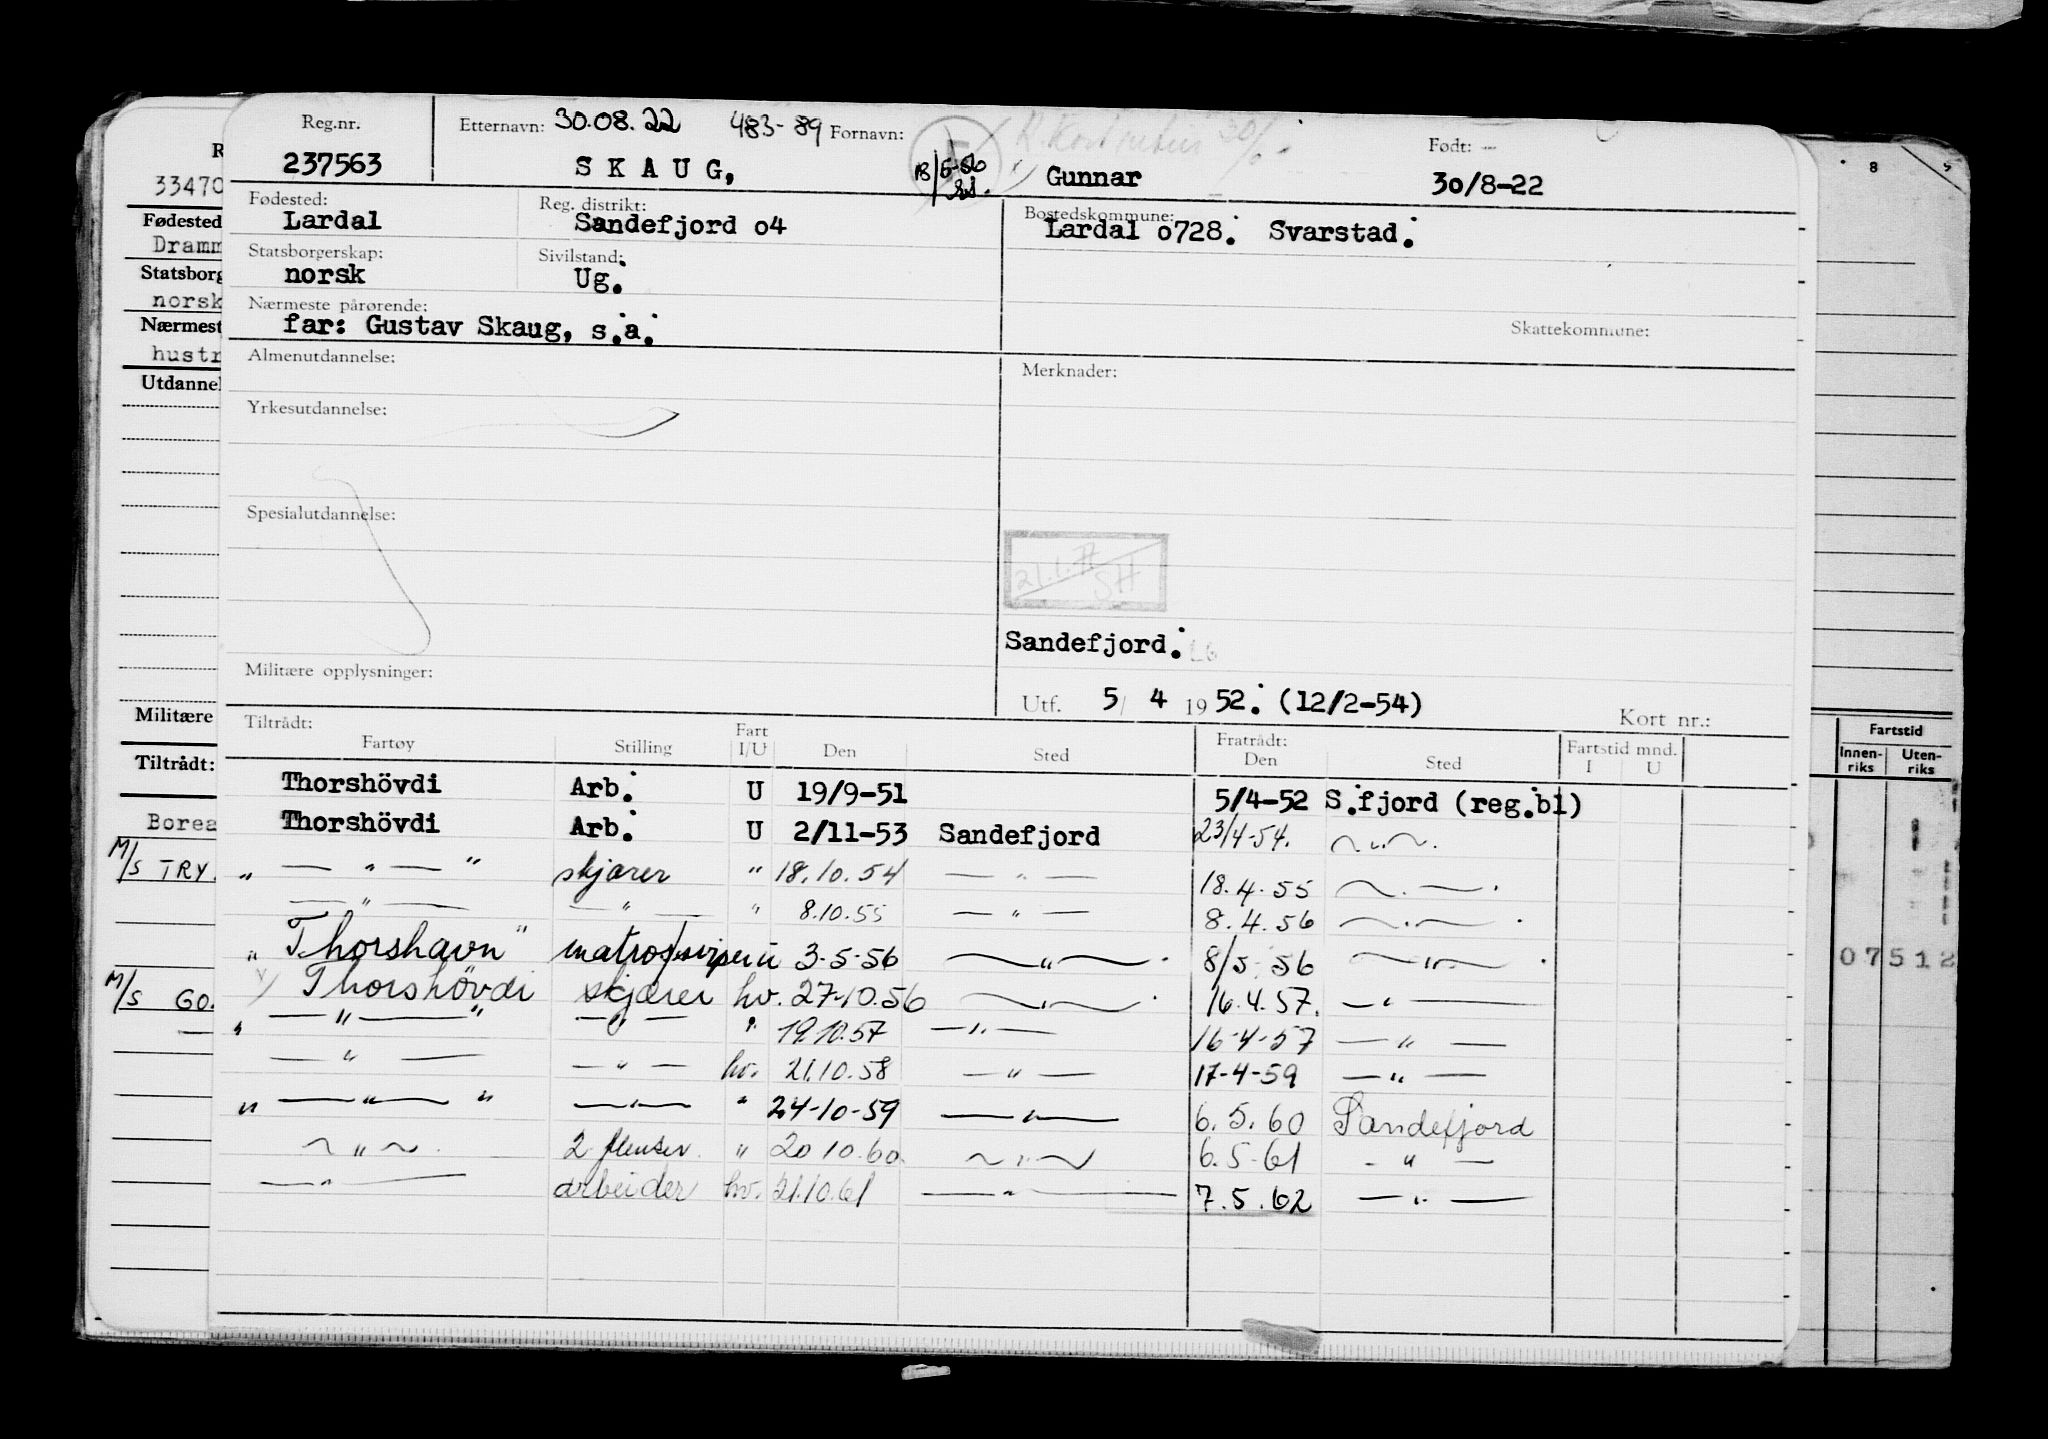 Reg.nr. Etternavn: 30.08.22 483-89 Fornavn: Født:
237563 SKAUG, 13/5-56 Gunnar 30/8-22
Fødested: Reg. distrikt: Bostedskommune:
Lardal Sandefjord o4 Lardal o728. Svarstad.
Statsborgerskap: Sivilstand:
norsk Ug.
Nærmeste pårørende: Skattekommune:
far: Gustav Skaug, s.a.
Almenutdannelse: Merknader:
Yrkesutdannelse:
Spesialutdannelse:
21.1.77 SH
Sandefjord.
Militære opplysninger:
Utf. 5/ 4 1952. (12/2-54)
Kort nr.:
Tiltrådt: Fart Fratrådt: Fartstid mnd.
Fartøy Stilling I/U Den Sted Den Sted I U
Thorshövdi Arb. U 19/9-51 5/4-52 S.fjord (reg.bl)
Thorshövdi Arb. U 2/11-53 Sandefjord 23/4-54. ~ " ~.
" — " — " skjærer " 18.10.54 — " — 18.4.55 ~ . — .
— " — — " — " 8.10.55 — " — 8.4.56 ~ . ~ .
" Thorshavn " 3-5-56 ~ " ~ . 8/5-56 ~ " ~ .
Thorshövdi skjærer hv. 27-10.56 ~ . ~ . 16.4.57. — " —
" — " — " — " — " 19.10.57 — " — 16-4-57 — " —
— " — — " — hv. 21.10.58 — " — 17-4-59 — " —
" — " — " — " — " 24-10-59 — " — 6.5.60 Sandefjord
~ " ~ . 2 flenser. " 20 10.60 ~ " ~ 6.5-61 - " —
— " — arbeider hv. 21.10.61 — " — 7.5.62 — " —
R
33470
Fødested
Dramm
Statsborg
norsk
Nærmest
hustr
Utdannel
Militære
Tiltrådt:
Borea
M/S TRY.
M/S GO.
8
Fartstid
Innen-riks Uten-riks
07512